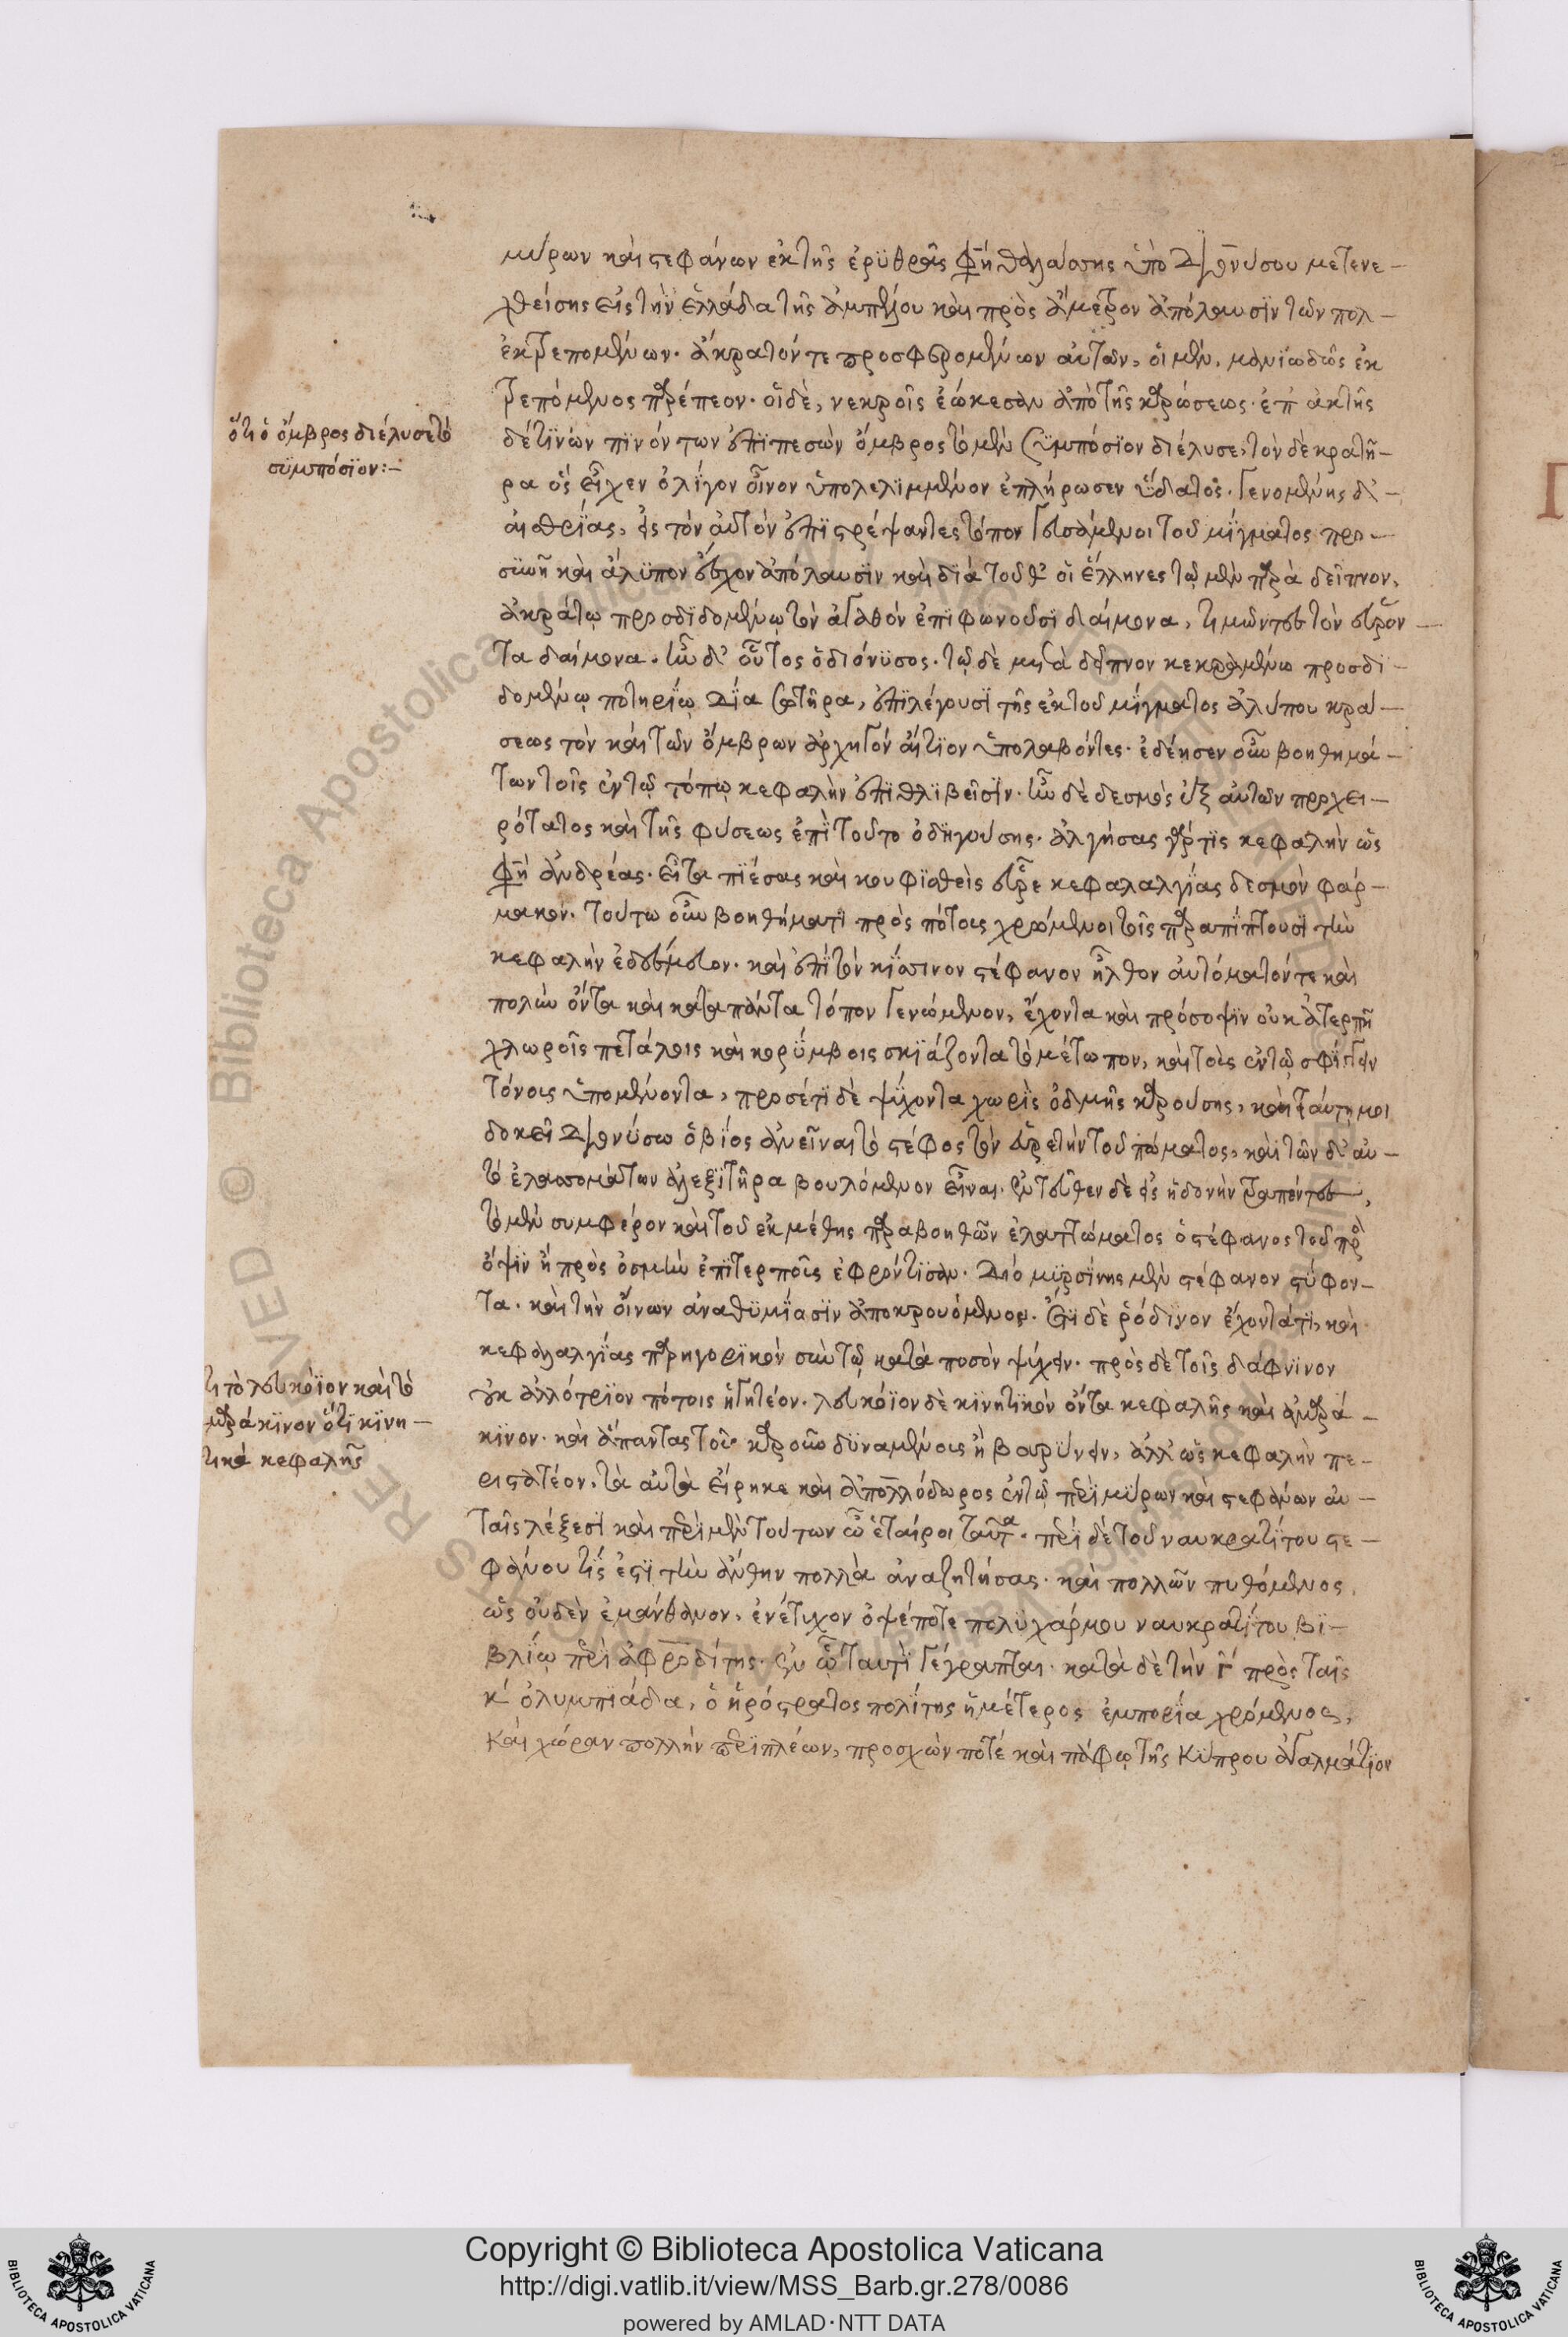 μύρων καὶ στεφάνων ἐκ τῆς ἐρϋθρᾶς φησὶ θαλάσσης ὑπὸ Διονύσου μετενε-
χθείσης εἰς τὴν ἑλλάδα τῆς ἀμπέλου καὶ πρὸς ἄμετρον ἀπόλαυσϊν τῶν πολ-
ἐκτρεπομένων. ἄκρατόν τε προσφερομένων αὐτῶν, οἱ μὲν, μανιωδῶς ἐκ
τρεπόμενος παρέπεον. οἱ δὲ, νεκροῖς ἐώκεσαν ἀπὸ τῆς καρώσεως. ἐπ' ἀκτῆς
ὅτι ὁ ὄμβρος διέλυσε τὸ
σϋμπόσϊον:-
δέ τϊνων πϊνόντων ἐπϊπεσὼν ὄμβρος τὸ μὲν σϋμπόσϊον διέλυσε, τὸν δὲ κρατῆ-
ρα ὃς εἶχεν ὀλίγον οἶνον ὑπολελϊμμένον ἐπλήρωσεν ὕδατος. γενομένης δ'-
αἰθρΐας, εἰς τὸν αὐτὸν ἐπϊστρέψαντες τόπον γευσάμενοι τοῦ μίγματος προ-
σϊωῆ καὶ ἄλϋπον ἔσχον ἀπόλαυσϊν καὶ δϊὰ τοῦθ' οἱ ἕλληνες τῷ μὲν παρὰ δεῖπνον,
ἀκράτῳ προσδϊδομένῳ τὸν ἀγαθὸν ἐπϊφωνοῦσϊ δαίμονα, τιμῶντες τὸν εὑρόν-
τα δαίμονα. ἦν δ' οὗτος ὁ διόνϋσος. τῷ δὲ μετὰ δεῖπνον κεκραμένω προσδϊ-
δομένῳ ποτηρίῳ Δΐα σωτῆρα, ἐπϊλέγουσϊ τῆς ἐκ τοῦ μΐγματος ἀλύπου κρά-
σεως τὸν καὶ τῶν ὄμβρων ἀρχηγὸν αἴτϊον ὑπολαβόντες. ἐδέησεν οὖν βοηθημά-
των τοῖς ἐν τῷ τόπῳ κεφαλὴν ἐπϊθλϊβεῖσϊν. ἦν δὲ δεσμὸς ἐξ αὐτῶν προχει-
ρότατος καὶ τῆς φύσεως ἐπϊ τοῦτο ὁδηγούσης. ἀλγήσας γάρ τϊς κεφαλὴν ὥς
φησὶ ἀνδρέας. εἶτα πϊέσας καὶ κουφϊσθεὶς εὗρε κεφαλαλγΐας δεσμὸν φάρ-
μακον. τούτω οὖν βοηθήματϊ πρὸς πότοις χρώμενοι τοῖς παραπΐπτουσϊ τὴν
κεφαλὴν ἐδεσμευον. καὶ ἐπΐ τὸν κΐσσινον στέφανον ἦλθον αὐτόματόν τε καὶ
πολὺν ὄντα καὶ κατα πάντα τόπον γενόμενον, ἔχοντα καὶ πρόσοψϊν οὐκ ἀτερπῆ
χλωροῖς πετάλοις καὶ κορΰμβοις σκϊάζοντα τὸ μέτωπον, καὶ τοὺς ἐν τῷ σφΐγγειν
τόνους ὑπομένοντα, προσέτϊ δὲ ψΰχοντα χωρὶς ὀδμῆς καρούσης, καὶ ταύτη μοι
δοκεῖ Διονύσω ὁ βίος ἀνεῖναι τὸ στέφος τὸν εὑρετὴν τοῦ πώματος, καὶ τῶν δι' αὐ-
τὸ ἐλασσομάτων ἀλεξϊτῆρα βουλόμενον εἶναι. ἐντεῦθεν δὲ εἰς ἡδονὴν τραπέντες,
τὸ μὲν συμφέρον καὶ τοῦ ἐκ μέθης παραβοηθῶν ἐλαττώματος ὁ στέφανος τοῦ πρὸ
ὄψϊν ἢ πρὸς ὀσμὴν ἐπϊτερποῦς ἐφρόντϊσαν. Διὸ μϋρσίνης μὲν στέφανον στύφον-
τα. καὶ τὴν οἴνων ἀναθϋμΐασϊν ἀποκρουόμενος. ἔτϊ δὲ ῥόδινον ἔχοντά τϊ, καὶ
κεφαλαλγΐας παρηγορϊκὸν σὺν τῷ κατὰ ποσὸν ψύχειν. πρὸς δὲ τοῖς δάφνϊνον
τι τὸ λευκόϊον καὶ τὸ
ἀμαράκινον ὅτϊ κϊνη-
τικὰ κεφαλῆς
οὐκ ἀλλότρϊον πότοις ἡγητέον. λευκόϊον δὲ κϊνητϊκὸν ὄντα κεφαλῆς καὶ ἀμαρά-
κϊνον. καὶ ἅπαντας τοὺς καροῦν δϋναμένοις ἢ βαρΰνειν, ἄλλως κεφαλὴν πε-
ριστατέον. τὰ αὐτὰ εἴρηκε καὶ ἀπολλόδωρος ἐν τῷ περὶ μΰρων καὶ στεφάνων αὐ-
ταῖς λέξεσϊ καὶ περὶ μὲν τούτων ὦ ἑταίροι ταῦτα. περὶ δὲ τοῦ ναυκρατΐτου στε-
φάνου τΐς ἐστϊ τὴν ἄνθην πολλὰ ἀναζητήσας. καὶ πολλῶν πυθόμενος,
ὡς οὐδὲν ἐμάνθανον, ἐνέτυχον ὀψέποτε πολϋχάρμου ναυκρατίτου βϊ-
βλίῳ περὶ ἀφροδίτης. ἐν ᾧ ταυτὶ γέγραπται. κατὰ δὲ τὴν γ' πρὸς ταῖς
κ' ὀλυμπϊάδα, ὁ ἡρόστρατος πολΐτης ἡμέτερος ἐμπορΐα χρώμενος,
καὶ χώραν πολλὴν περϊπλέων, προσχών ποτέ καὶ πάφῳ τῆς Κϋπρου ἀγαλμάτϊον
Copyright © Biblioteca Apostolica Vaticana
http://digi.vatlib.it/view/MSS_Barb.gr.278/0086
powered by AMLAD·NTT DATA
BIBLIOTECA APOSTOLICA VATICANA
BIBLIOTECA APOSTOLICA VATICANA